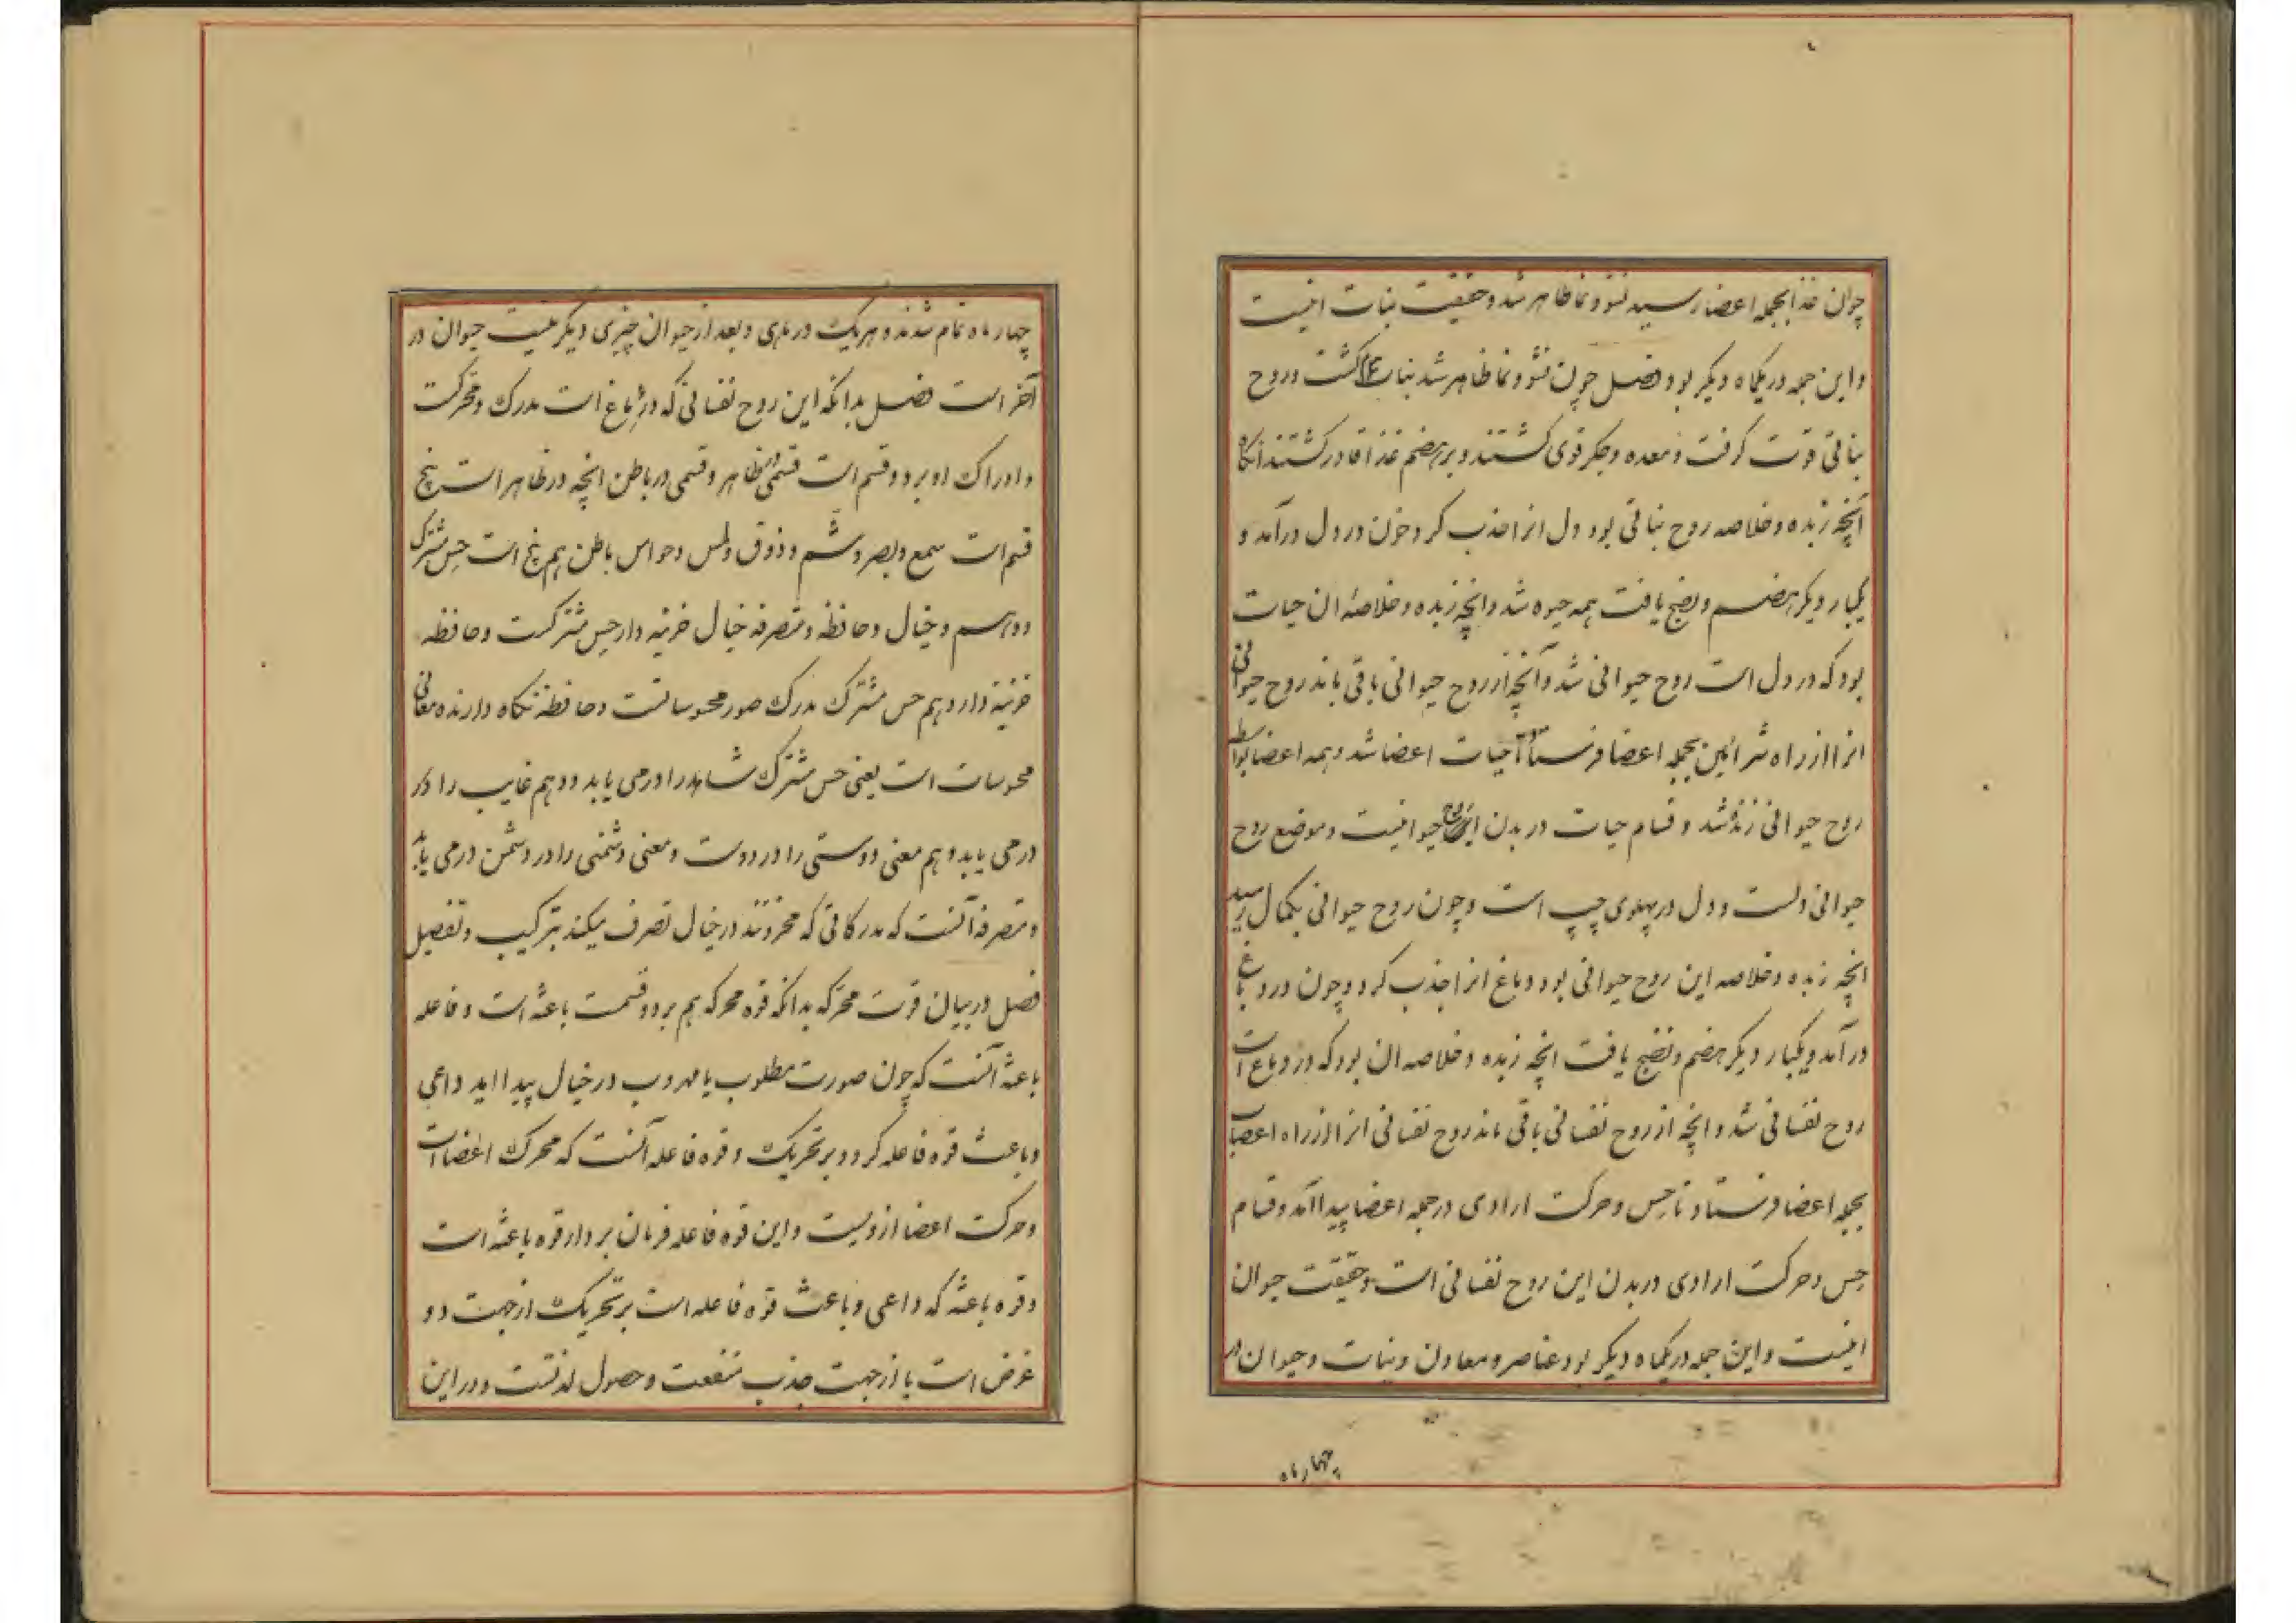 چون غذا بجمله اعضا رسید نشو و نما ظاهر شد و حقیقت نبات اینست
و این جمله در یکماه دیگر بود فصل چون نشو و نما ظاهر شد نبات گشت و روح
نباتی قوت گرفت و معده و جگر قوی گشتند و بر هضم غذا قادر گشتند انگاه
آنچه زبده و خلاصه روح نباتی بود دل انرا جذب کرد و چون در دل درآمد و
یکبار دیگر هضم و نضج یافت همه حیوه شد و انچه زبده و خلاصه ان حیات
بود که در دل است روح حیوانی شد و آنچه از روح حیوانی باقی ماند روح حیوانی
انرا از راه شرائین بجمله اعضا فرستاد تا حیات اعضا شد و همه اعضا بواسطه
روح حیوانی زنده شد و قسام حیات در بدن این روح حیوانیست و موضع روح
حیوانی دلست و دل در پهلوی چپ است و چون روح حیوانی بکمال رسید
انچه زبده و خلاصه این روح حیوانی بود دماغ انرا جذب کرد و چون در دماغ
درآمد و یکبار دیگر هضم و نضج یافت انچه زبده و خلاصه ان بود که در دماغ است
روح نفسانی شد و انچه از روح نفسانی باقی ماند روح نفسانی انرا از راه اعصاب
بجمله اعضا فرستاد تا حس و حرکت ارادی در جمله اعضا پیدا آمد و قسام
حس و حرکت ارادی در بدن این روح نفسانی است و حقیقت حیوان
اینست و این جمله در یکماه دیگر بود عناصر و معادن و نبات و حیوان در
چهار ماه
چهار ماه تمام شدند و هر یک در ماهی و بعد از حیوان چیزی دیگر نیست حیوان در
آخر است فصل بدانکه این روح نفسانی که در دماغ است مدرک و محرکست
و ادراک او بر دو قسم است قسمی در ظاهر و قسمی در باطن انچه در ظاهر است پنج
قسم است سمع و بصر و شم و ذوق و لمس و حواس باطن هم پنج است حس مشترک
و وهم و خیال و حافظه و متصرفه خیال خزینه دار حس مشترکست و حافظه
خزینه دار وهم حس مشترک مدرک صور محسوساتست و حافظه نگاه دارنده معانی
محسوسات است یعنی حس مشترک شاهد را درمی یابد و وهم غایب را در
درمی یابد وهم معنی دوستی را در دوست و معنی دشمنی را در دشمن درمی یابد
و متصرفه آنست که مدرکاتی که مخزونند در خیال تصرف میکند بترکیب و تفصیل
فصل در بیان قوت محرکه بدانکه قوه محرکه هم بر دو قسمت باعثه است و فاعله
باعثه آنست که چون صورت مطلوب یا مهروب در خیال پیدا اید داعی
و باعث قوه فاعله گردد بر تحریک و قوه فاعله آنست که محرک اعضا است
و حرکت اعضا از ویست و این قوه فاعله فرمان بردار قوه باعثه است
و قوه باعثه که داعی و باعث قوه فاعله است بر تحریک از جهت دو
غرض است یا از جهت جذب منفعت و حصول لذتست و در این